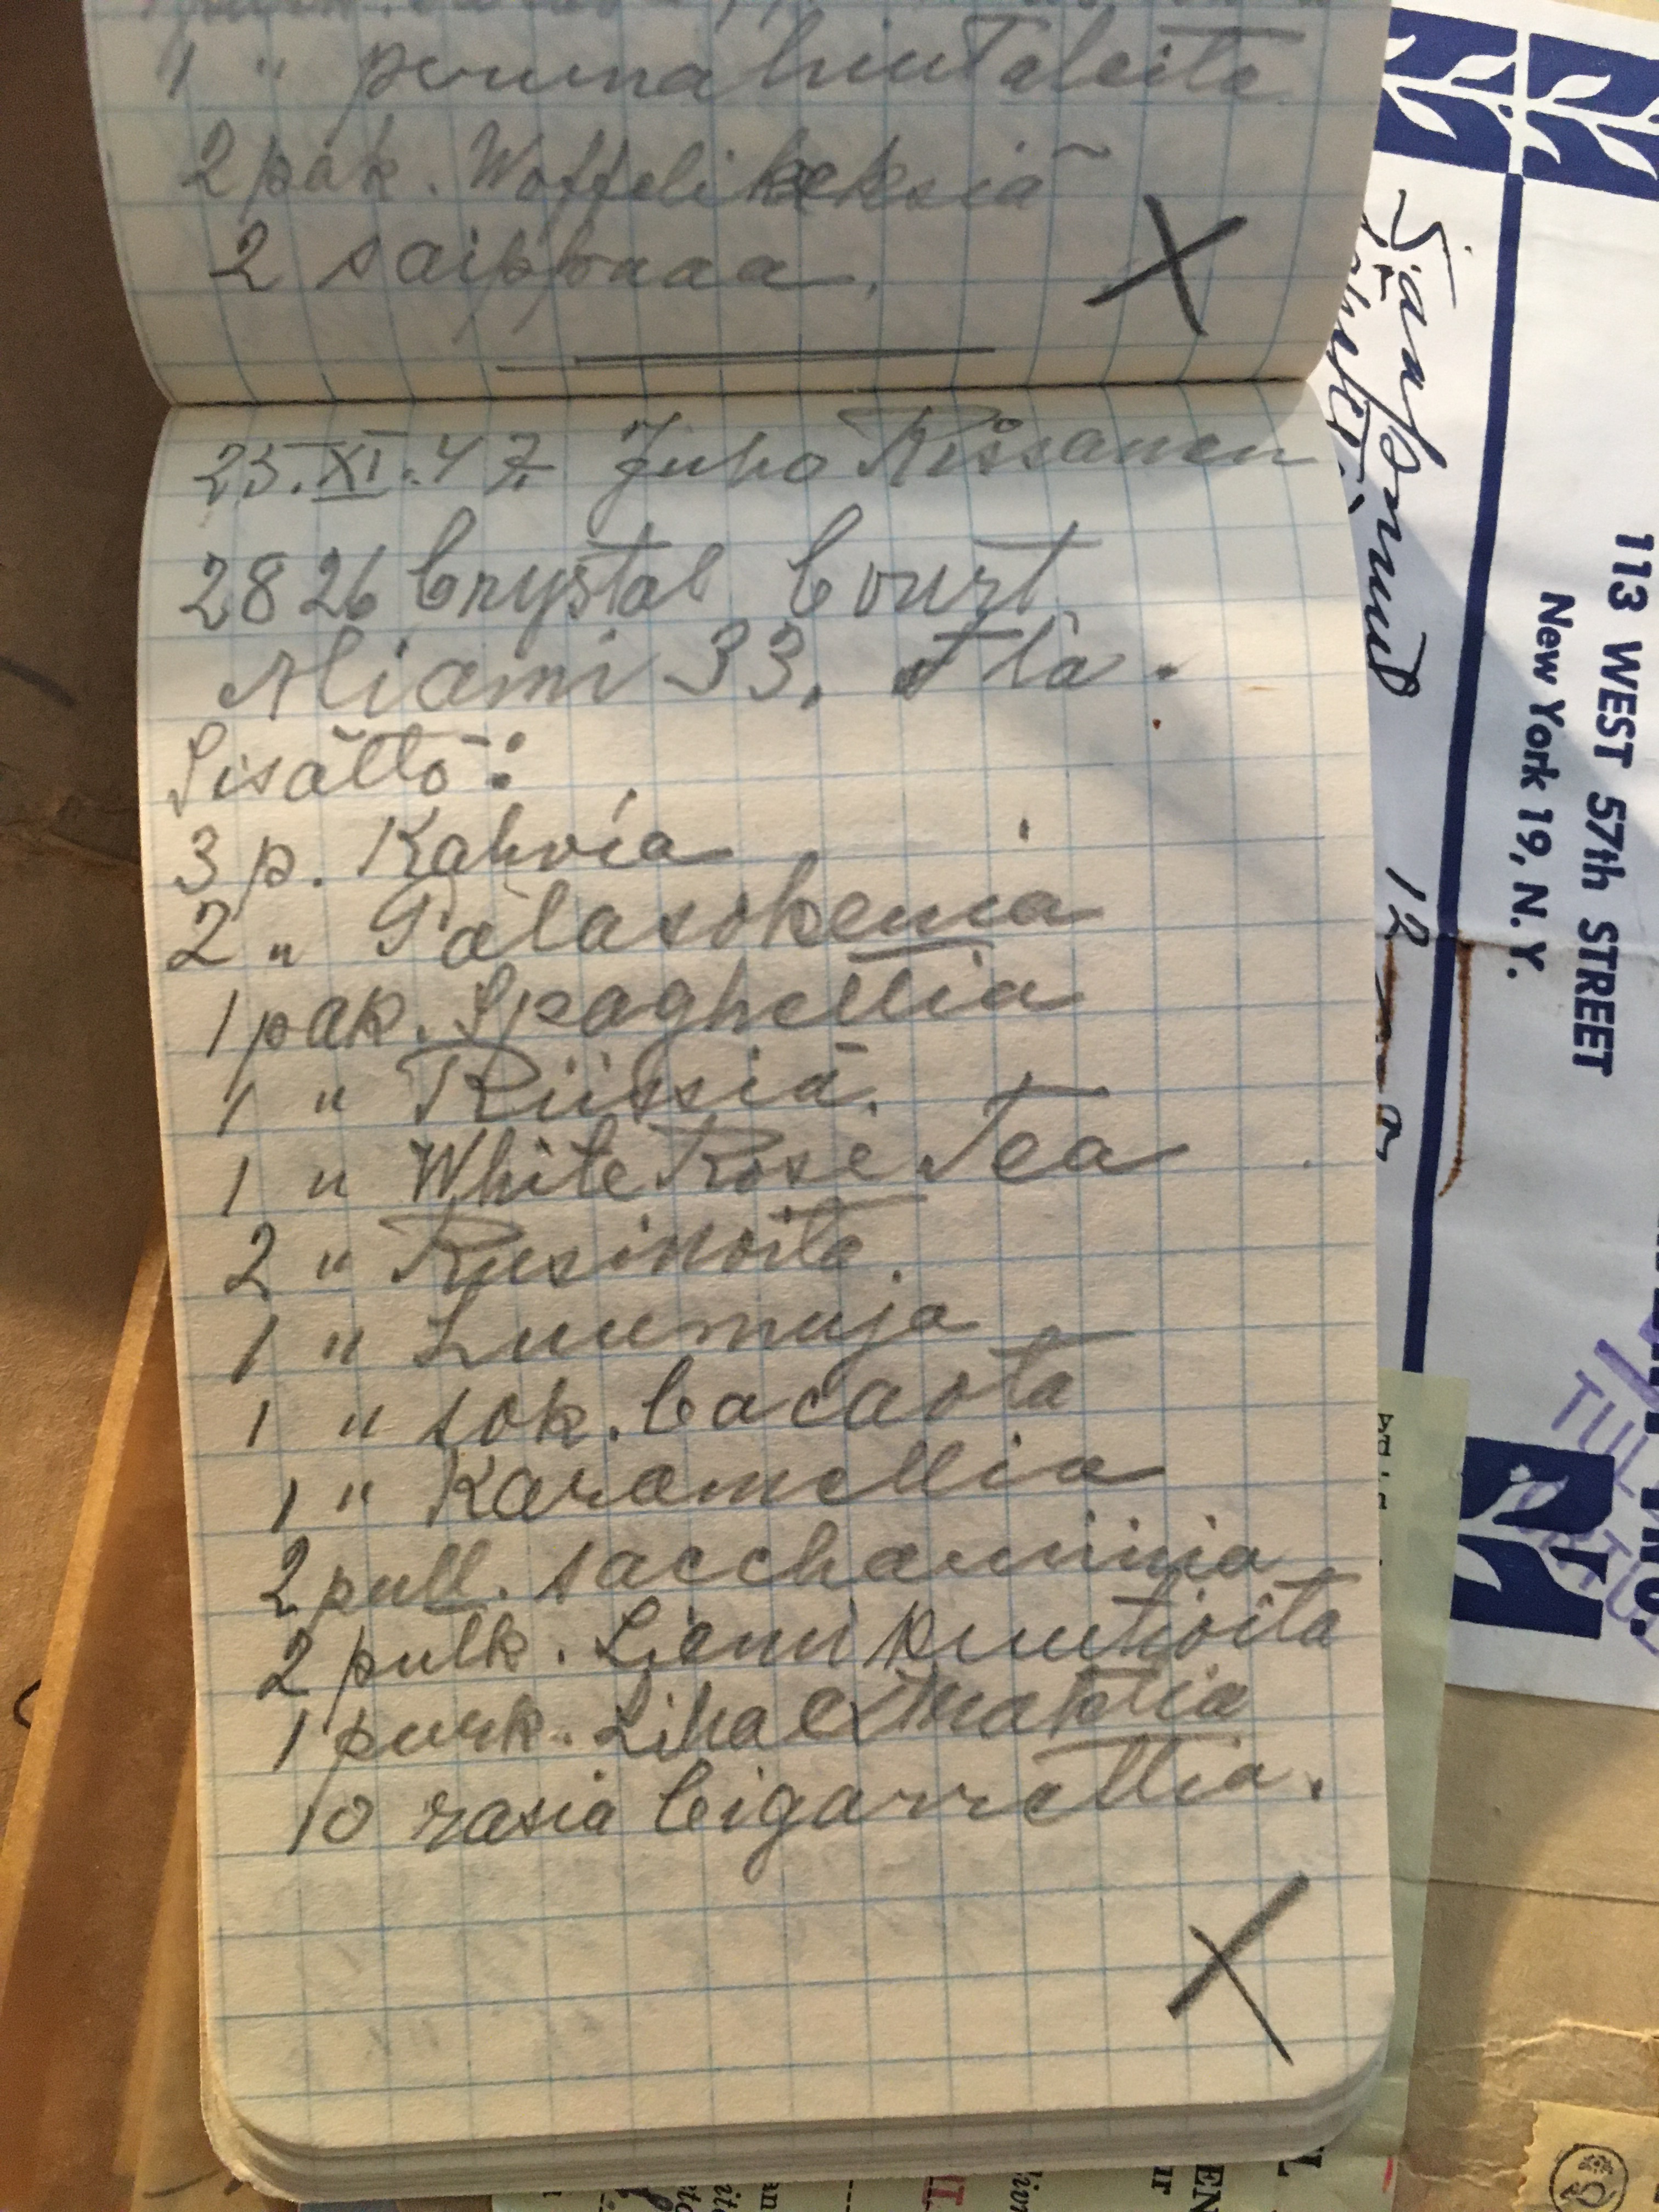 1 " perunahiutaleita
2 pak. Woffelikeksiä
2 saippuaa.
25.XI.47 Juho Rissanen
2826 Crystal Court
Miami 33. Fla.
Sisältö:
3 p. Kahvia
2 " Palasokeria
1 pak. Spaghettia
1 " Riissiä.
1 " White Rose Tea
2 " Rusinoita.
1 " Luumuja
1 " sok. Cacaota
1 " Karamellia
2 pull. sacchariinia
2 pulk. Liemikuutioita
1 purk. Lihaextraktia
10 rasia Cigarrettia.
Saapunut 12
113 WEST 57th STREET
New York 19, N.Y.
INC.
TUL